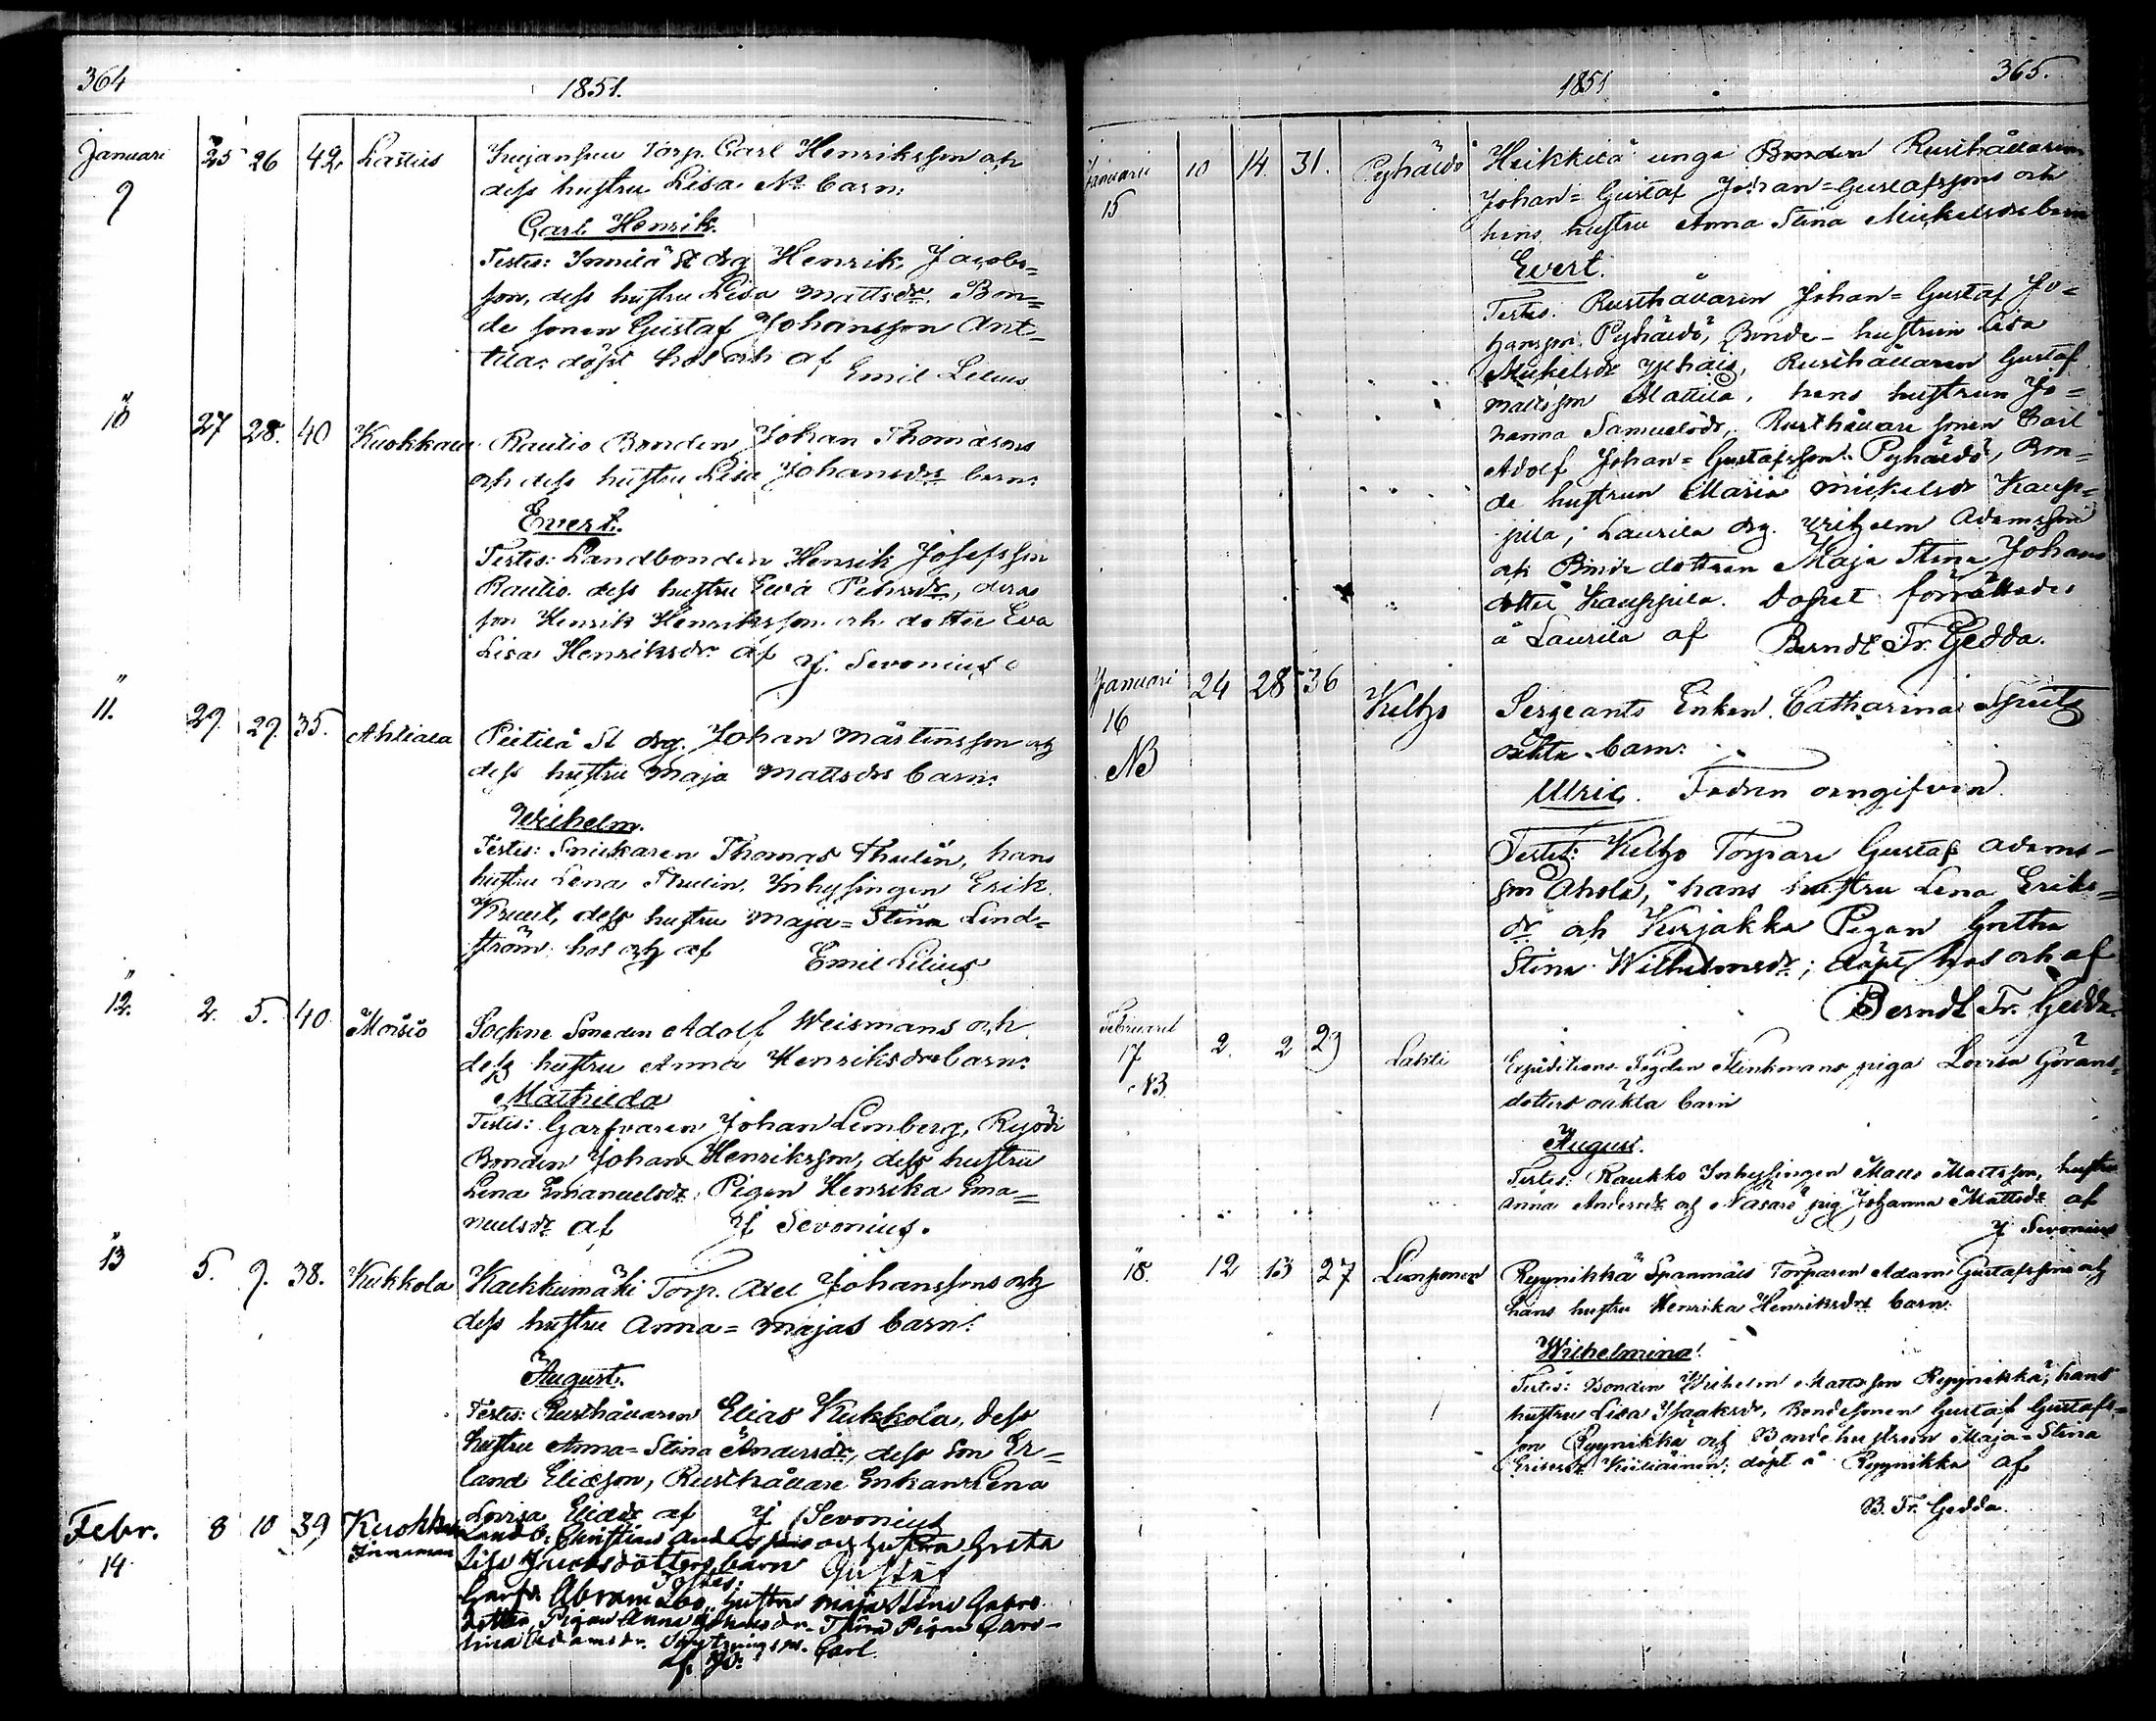 364
1851.
Januari 25 26 42 Lattus Torp. Carl Henriksson och
9 dess hustru Lisas No barn:
Carl Henrik.
Testes: St drg Henrik Jacobs=
son, dess hustru Lisa Mattsdr. Bon=
de sonen Gustaf Johansson Ant=
tila: döpt hos och af Emil Lilius
10 27 28. 40 Kuokkala Rautio Bonden Johan Thomassons
och dess hustru Lisa Johansdrs barn:
Evert.
Testes: Landbonden Henrik Josefsson
Rautio. dess hustru Eva Pehrsdr, deras
son Henrik Henriksson och dotter Eva
Lisa Henriksdr. af J. Sevonius
11. 29. 29. 35. Ahtiala Pietilä St drg. Johan Mårtinsson och
dess hustru Maja Mattsdrs barn:
Wilhelm.
Testes: Snickaren Thomas Thulin, hans
hustru Lena Thulin, Inhysingen Erik
dess hustru Maja=Stina Lind=
ström: hos och af Emil Lilius
12. 2. 5. 40 Moisio Sockne Smeden Adolf Weismans och
dess hustru Anna Henriksdrs barn:
Mathilda
Testes: Garfvaren Johan Lemberg,
Bonden Johan Henriksson, dess hustru
Lena Emanuelsdr. Pigan Henrika Ema=
nuelsdr af J Sevonius.
13 5. 9. 38. Kukkola Torp. Axel Johanssons och
dess hustru Anna=Majas barn:
August.
Testes: Rusthållaren Elias Kukkola, dess
hustru Anna=Stina Andersdr, dess son Er=
land Eliasson, Rusthållare Enkan Lena
Lovisa Eliædr af J Sevonius
Febr. 8 10 39 Landb. Christian och hustru Greta
14 barn Gustaf
Testes:
Abram hustru Maja Stina
Pigan Anna Pigan Caro=
lina Adamsdr. Carl

1851
365.
Januarii 10 14. 31. Pyhäldö Heikkilä unge Bonden Rusthållaren
15 Johan=Gustaf Johan=Gustafssons och
hans hustru Anna Stina Mickelsdrs barn
Evert.
Testes. Rusthållaren Johan=Gustaf Jo=
hansson. Pyhäldö, Bonde-hustrun Lisa
Mickelsdr Rusthållaren Gustaf
Mattsson Mattila, hans hustrun Jo=
hanna Samuelsdr, Rusthållare sonen Carl
Adolf Johan=Gustafsson. Pyhäldö, Bon=
de hustrun Maria Mickelsdr Kaup=
pila; Laurila drg. Wilhelm Adamsson
och Bonde dottren Maja Stina Johans
dotter Kauppila. Dopet förrättades
å Laurila af Berndt Fr. Gedda.
Januari 24 28 36 Keltjo Sergeants Enkan Catharina
16 oäkta barn:
NB Ulric. Fadren oangifven
Testes: Keltjo Torpare Gustaf Adams-
son Ahola, hans hustru Lena Eriks=
dr och Kirjakka Pigan Gretha
Stina Wilhelmsdr; döpt hos och af
Berndt Fr. Gedda.
Februarii 2. 2 29 Lahti Expeditions Fogden piga Lovisa Görans=
17 dotters oäkta barn
NB.
August.
Testes: Raukko Inhysingen Matts Mattsson, hustru
Anna Andersdr och pig Johanna Mattsdr af
J Sevonius
18. 12 13 27 Limponen Reppnikkä Torparen Adam Gustafssons och
hans hustru Henrika Henriksdrs barn.
Wilhelmina.
Testes: Bonden Wilhelm Mattsson hans
hustru Lisa Isaaksdr, Bondesonen Gustaf Gustafs=
son och Bondehustrun Maja=Stina
döpt å af
B. Fr. Gedda.